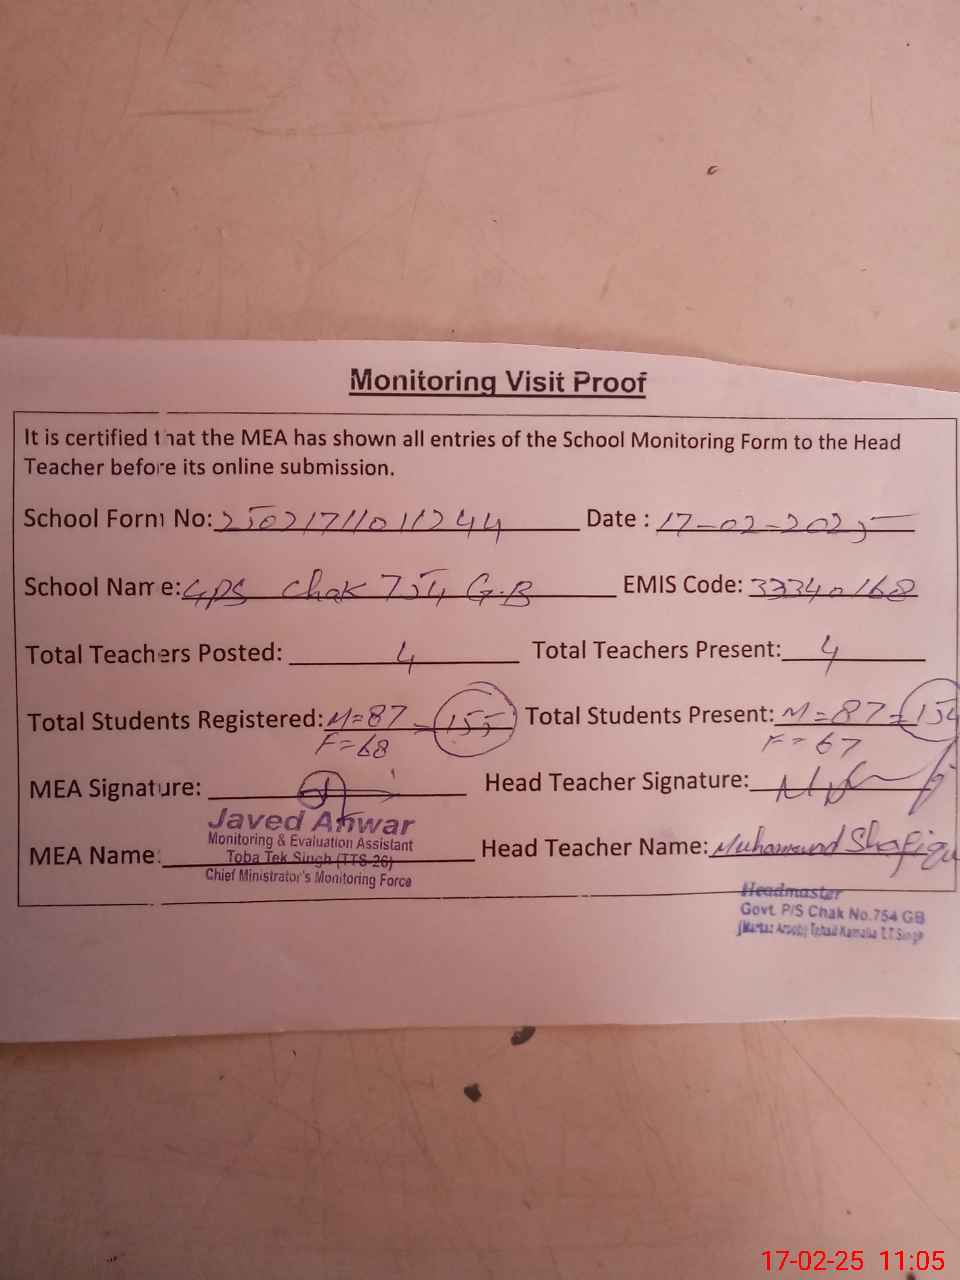 Monitoring Visit Proof
It is certified that the MEA has shown all entries of the School Monitoring Form to the Head
Teacher before its online submission.
School Form No: 25021711011244 Date : 17-02-2025
School Name: GPS Chak 754 G.B EMIS Code: 33340168
Total Teachers Posted: 4 Total Teachers Present: 4
Total Students Registered: M=87 = 155 Total Students Present: M=87 = 154
F=68 F=67
MEA Signature: Head Teacher Signature:
Javed Anwar
Monitoring & Evaluation Assistant
MEA Name: Toba Tek Singh (TTS-26) Head Teacher Name: Muhammad Shafiqu
Chief Ministrator's Monitoring Force
Headmaster
Govt. P/S Chak No.754 GB
Tehsil Kamalia T.T.Singh
17-02-25 11:05